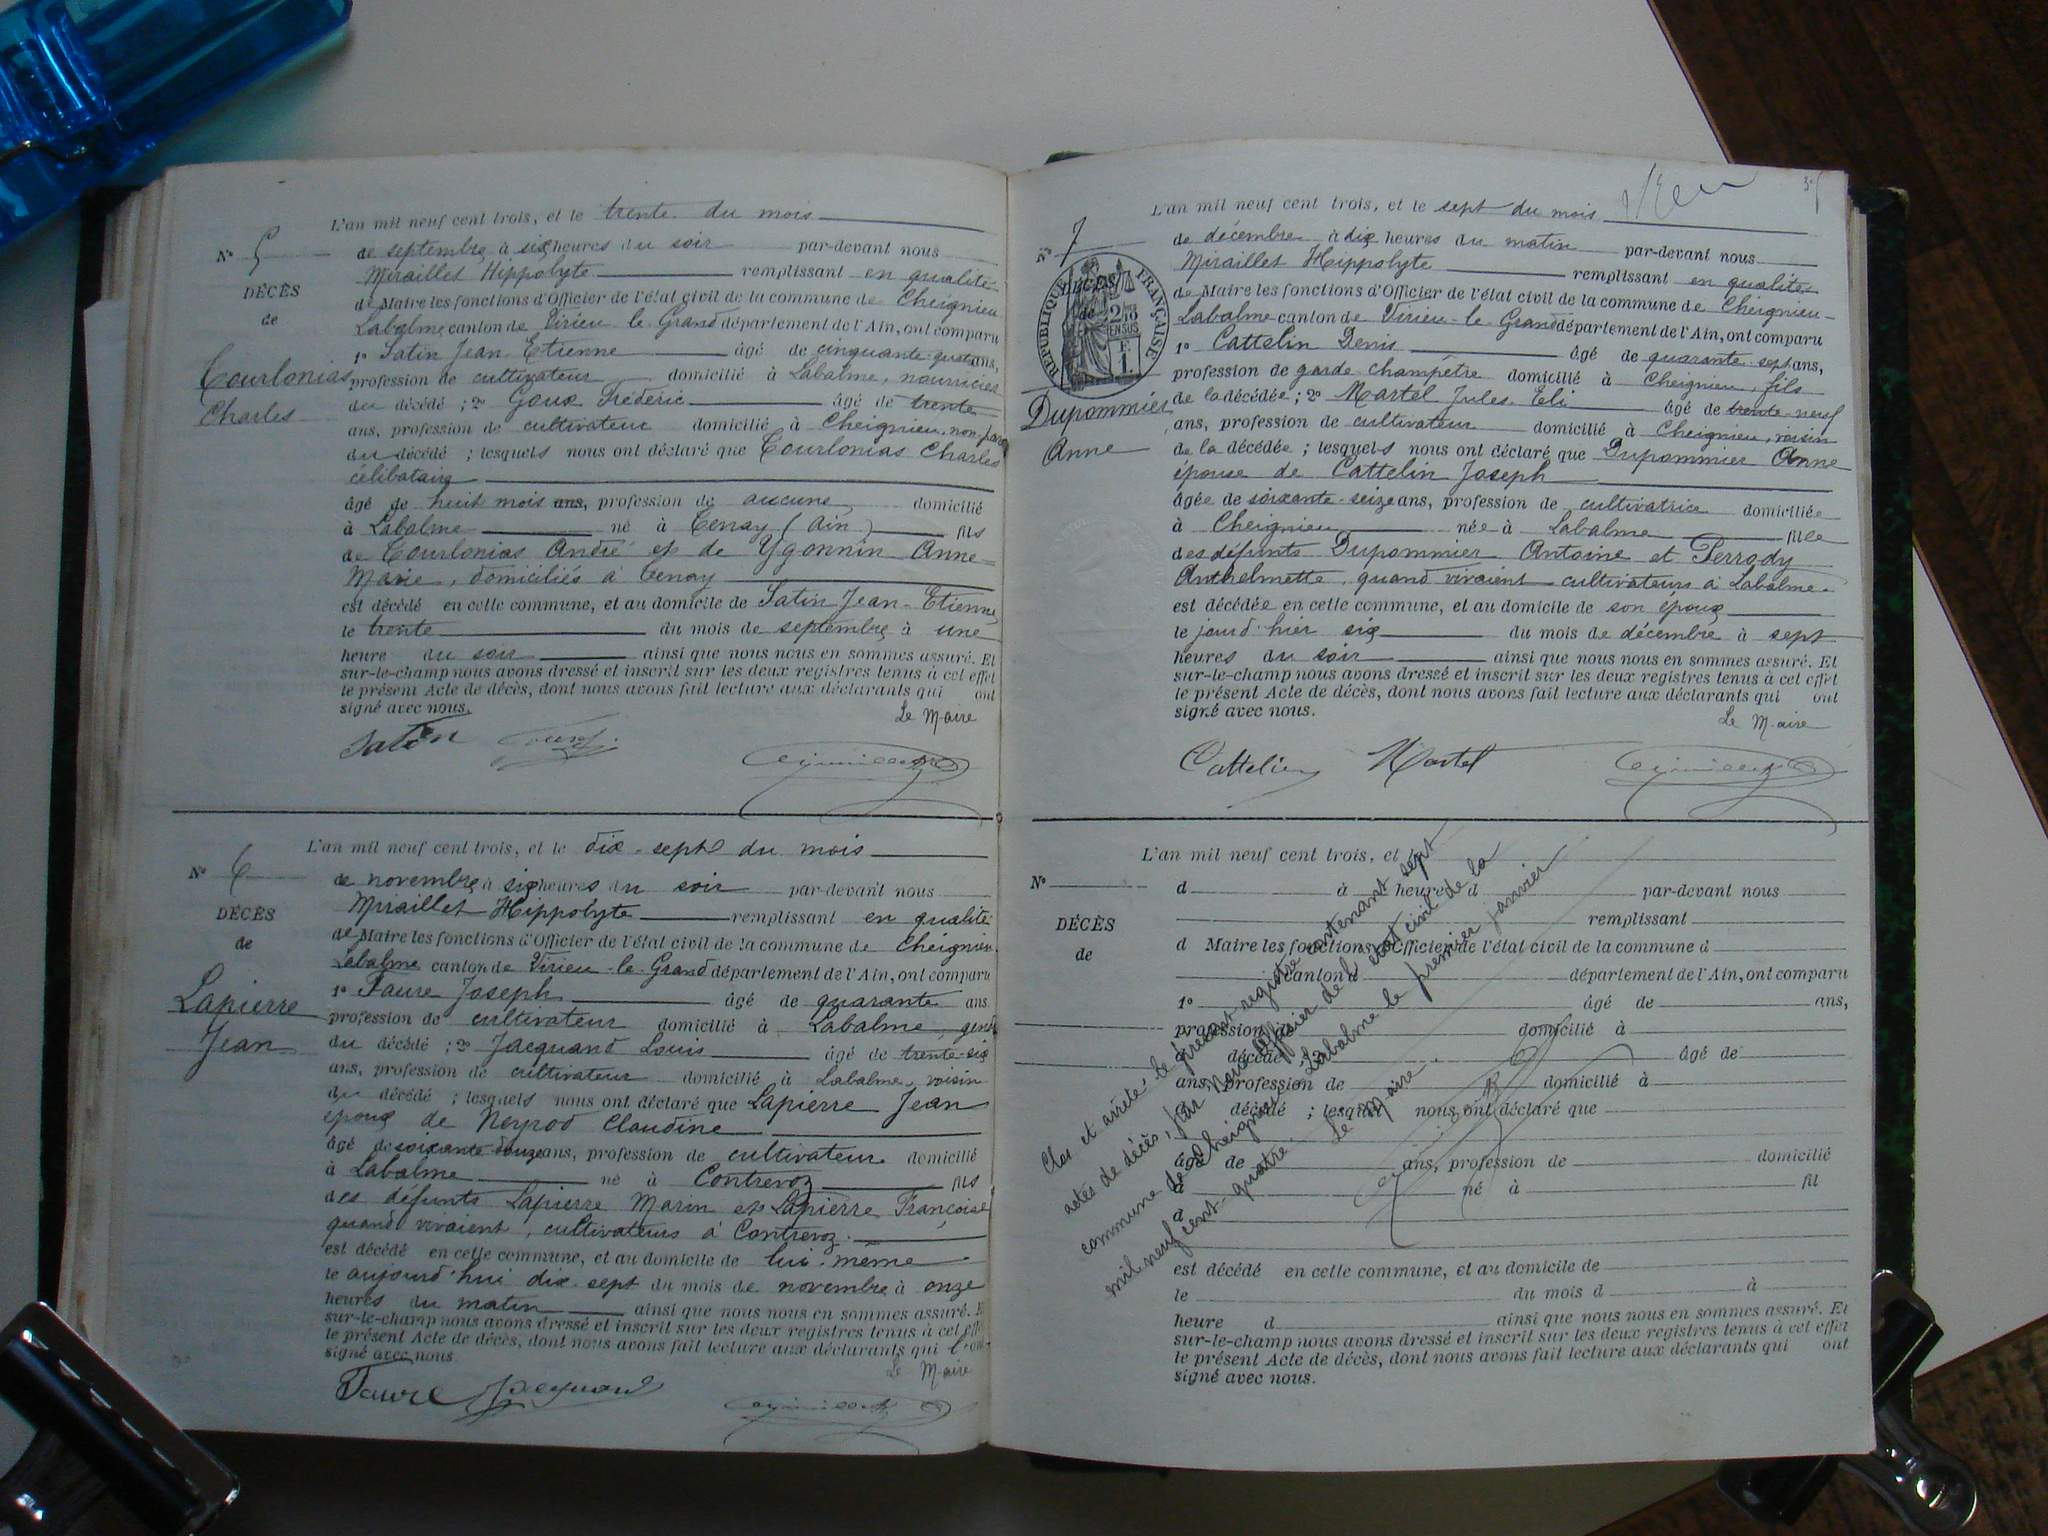 L'an mil neuf cent trois, et le trente du mois
N° 5
de septembre à six heures du soir par-devant nous
Miraillet Hippolyte remplissant en qualité
DÉCÈS
de Maire les fonctions d'Officier de l'état civil de la commune de Cheignieu
de
Labalme canton de Virieu-le-Grand département de l'Ain, ont comparu
1° Satin Jean Etienne âgé de cinquante-quatre ans,
Courlonias
profession de cultivateur domicilié à Labalme, nourricier
Charles
du décédé ; 2° Goux Fréderic âgé de trente
ans, profession de cultivateur domicilié à Cheignieu, non parent
du décédé ; lesquels nous ont déclaré que Courlonias Charles
célibataire
âgé de huit mois ans, profession de aucune domicilié
à Labalme né à Tenay (Ain) fils
de Courlonias André et de Ygonnin Anne-
Marie, domiciliés à Tenay
est décédé en cette commune, et au domicile de Satin Jean-Etienne,
le trente du mois de septembre à une
heure du soir ainsi que nous nous en sommes assuré. Et
sur-le-champ nous avons dressé et inscrit sur les deux registres tenus à cet effet
le présent Acte de décès, dont nous avons fait lecture aux déclarants qui ont
signé avec nous.
Le Maire
Satin
L'an mil neuf cent trois, et le dix-sept du mois
N° 6
de novembre à six heures du soir par-devant nous
Miraillet Hippolyte remplissant en qualité
DÉCÈS
de Maire les fonctions d'Officier de l'état civil de la commune de Cheignieu
de
Labalme canton de Virieu-le-Grand département de l'Ain, ont comparu
1° Faure Joseph âgé de quarante ans
Lapierre
profession de cultivateur domicilié à Labalme, gendre
Jean
du décédé ; 2° Jacquand Louis âgé de trente-six
ans, profession de cultivateur domicilié à Labalme, voisin
du décédé ; lesquels nous ont déclaré que Lapierre Jean
époux de Neyrod Claudine
âgé de soixante-douze ans, profession de cultivateur domicilié
à Labalme né à Contrevoz fils
des défunts Lapierre Marin et Lapierre Françoise
quand vivaient, cultivateurs à Contrevoz.
est décédé en cette commune, et au domicile de lui-même
le aujourd'hui dix-sept du mois de novembre à onze
heures du matin ainsi que nous nous en sommes assuré. Et
sur-le-champ nous avons dressé et inscrit sur les deux registres tenus à cet effet
le présent Acte de décès, dont nous avons fait lecture aux déclarants qui l'ont
signé avec nous
Le Maire
Faure Jacquand
L'an mil neuf cent trois, et le sept du mois
N° 7
de décembre à dix heures du matin par-devant nous
Miraillet Hippolyte remplissant en qualité
DÉCÈS
de
RÉPUBLIQUE FRANÇAISE
de Maire les fonctions d'Officier de l'état civil de la commune de Cheignieu-
Labalme canton de Virieu-le-Grand département de l'Ain, ont comparu
1° Cattelin Denis âgé de quarante-sept ans,
profession de garde champêtre domicilié à Cheignieu, fils
Dupommier
de la décédée ; 2° Martel Jules Eli âgé de trente-neuf
Anne
ans, profession de cultivateur domicilié à Cheignieu, voisin
de la décédée ; lesquels nous ont déclaré que Dupommier Anne
épouse de Cattelin Joseph
âgée de soixante-seize ans, profession de cultivatrice domiciliée
à Cheignieu née à Labalme fille
des défunts Dupommier Antoine et Perrody
Anthelmette, quand vivaient cultivateurs à Labalme.
est décédée en cette commune, et au domicile de son époux
le jourd'hier six du mois de décembre à sept
heures du soir ainsi que nous nous en sommes assuré. Et
sur-le-champ nous avons dressé et inscrit sur les deux registres tenus à cet effet
le présent Acte de décès, dont nous avons fait lecture aux déclarants qui ont
signé avec nous.
Le Maire
Cattelin Martel
L'an mil neuf cent trois, et le
N°
d à heure d par-devant nous
remplissant
DÉCÈS
d Maire les fonctions d'Officier de l'état civil de la commune d
de
canton d département de l'Ain, ont comparu
1° âgé de ans,
profession de domicilié à
d décédé ; 2° âgé de
ans, profession de domicilié à
d décédé ; lesquel nous ont déclaré que
âgé de ans, profession de domicilié
à né à fil
d
est décédé en cette commune, et au domicile de
le du mois d à
heure d ainsi que nous nous en sommes assuré. Et
sur-le-champ nous avons dressé et inscrit sur les deux registres tenus à cet effet
le présent Acte de décès, dont nous avons fait lecture aux déclarants qui ont
signé avec nous.
Clos et arrêté le présent registre contenant sept
actes de décès, par Nous Officier de l'état civil de la
commune de Cheignieu-Labalme le premier janvier
mil neuf cent quatre. Le Maire.